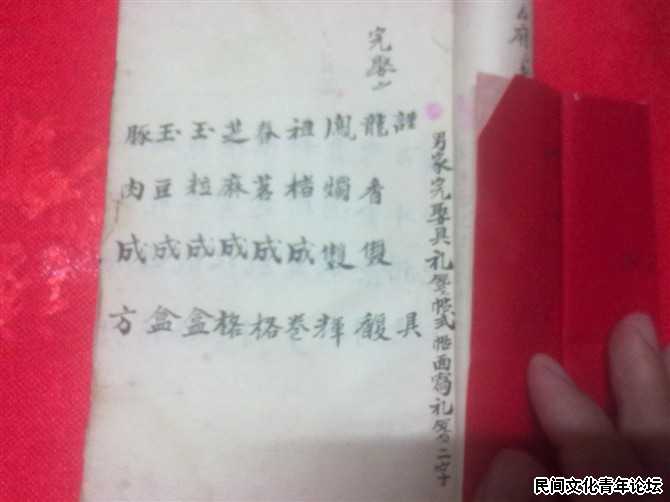 男家完娶具礼單帖式帖面寫礼單二字
完娶
謹具
龍香雙馥
鳳燭雙輝
祖楮成卷
春茗成格
芝麻成格
玉粒成盒
玉豆成盒
豚肉成方
民间文化青年论坛